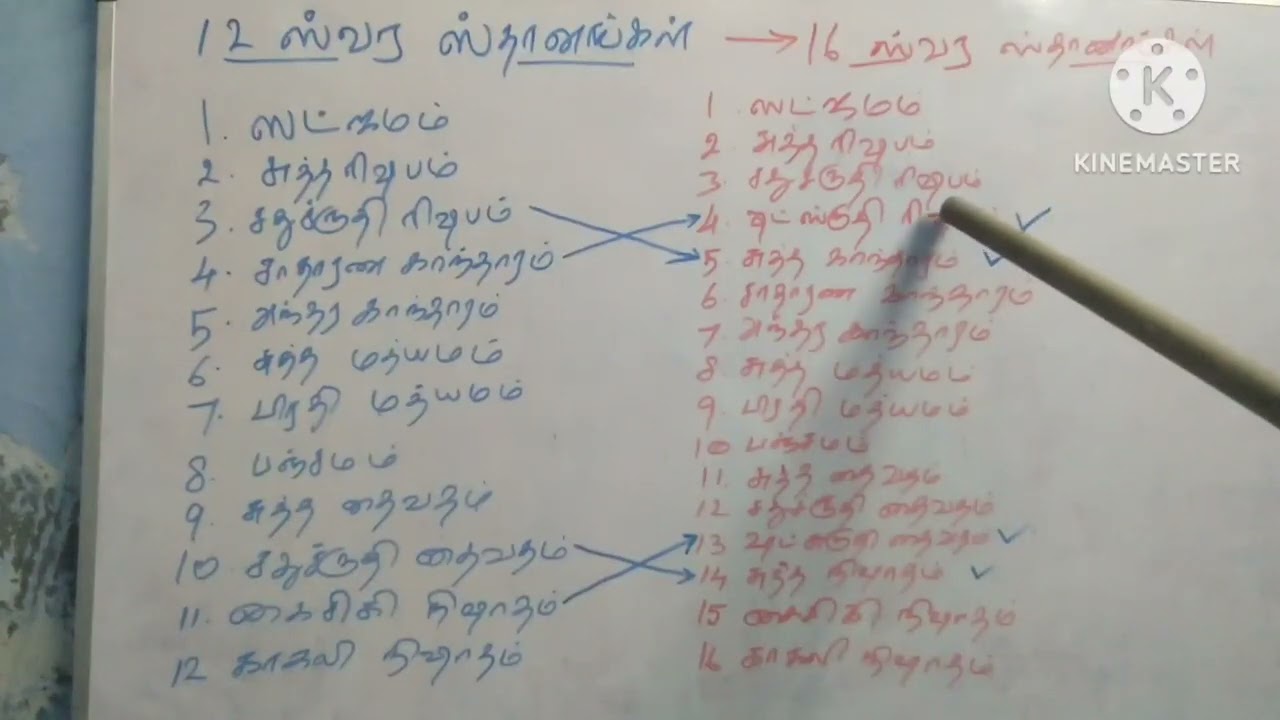 12 ஸ்வர ஸ்தானங்கள் → 16 ஸ்வர ஸ்தானங்கள்
1. ஸட்ஜமம்
2. சுத்த ரிஷபம்
3. சதுச்ருதி ரிஷபம்
4. சாதாரண காந்தாரம்
5. அந்தர காந்தாரம்
6. சுத்த மத்யமம்
7. பிரதி மத்யமம்
8. பஞ்சமம்
9. சுத்த தைவதம்
10 சதுச்ருதி தைவதம்
11. கைசிகி நிஷாதம்
12 காகலி நிஷாதம்
1 ஸட்ஜமம்
2 சுத்த ரிஷபம்
3. சதுச்ருதி ரிஷபம்
4. ஷட்ஸ்ருதி ✓
5 சுத்த காந்தாரம் ✓
6 சாதாரண காந்தாரம்
7 அந்தர காந்தாரம்
8 சுத்த மத்யமம்
9 பிரதி மத்யமம்
10 பஞ்சமம்
11. சுத்த தைவதம்
12 சதுச்ருதி தைவதம்
13 ஷட்ஸ்ருதி தைவதம் ✓
14 சுத்த நிஷாதம் ✓
15 கைசிகி நிஷாதம்
16 காகலி நிஷாதம்
K
KINEMASTER